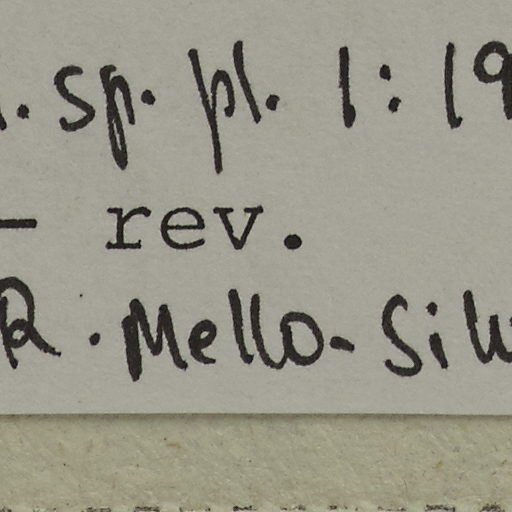 . sp. pl. 1:19
- rev.
R. Mello-Silv